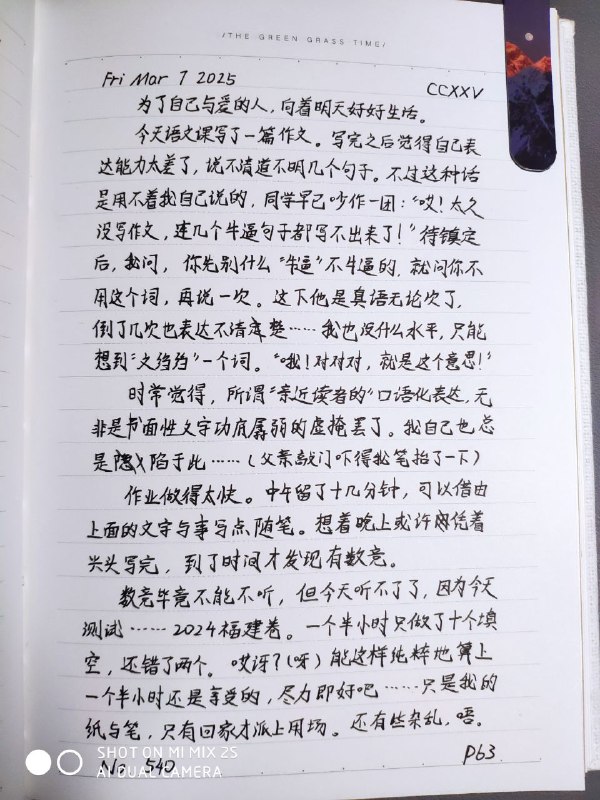 /THE GREEN GRASS TIME/
Fri Mar 7 2025 CCXXV
为了自己与爱的人，向着明天好好生活。
今天语文课写了一篇作文。写完之后觉得自己表
达能力太差了，说不清道不明几个句子。不过这种话
是用不着我自己说的，同学早已吵作一团："哎！太久
没写作文，连几个牛逼句子都写不出来了！"待镇定
后，我问，你先别什么"牛逼"不牛逼的，就问你不
用这个词，再说一次。这下他是真语无论次了，
倒了几次也表达不清楚……我也没什么水平，只能
想到"文绉绉"一个词。"哦！对对对，就是这个意思！"
时常觉得，所谓"亲近读者的"口语化表达，无
非是书面性文字功底孱弱的虚掩罢了。我自己也总
是陷于此……（父亲敲门吓得我笔抬了一下）
作业做得太快。中午留了十几分钟，可以借由
上面的文字与事写点随笔。想着晚上或许凭着
兴头写完，到了时间才发现有数竞。
数竞毕竟不能不听，但今天听不了了，因为今天
测试……2024福建卷。一个半小时只做了十个填
空，还错了两个。哎讶？（呀）能这样纯粹地算上
一个半小时还是享受的，尽力即好吧……只是我的
纸与笔，只有回家才派上用场。还有些杂乱，唔。
SHOT ON MI MIX 2S
AI DUAL CAMERA
No. 540 P63